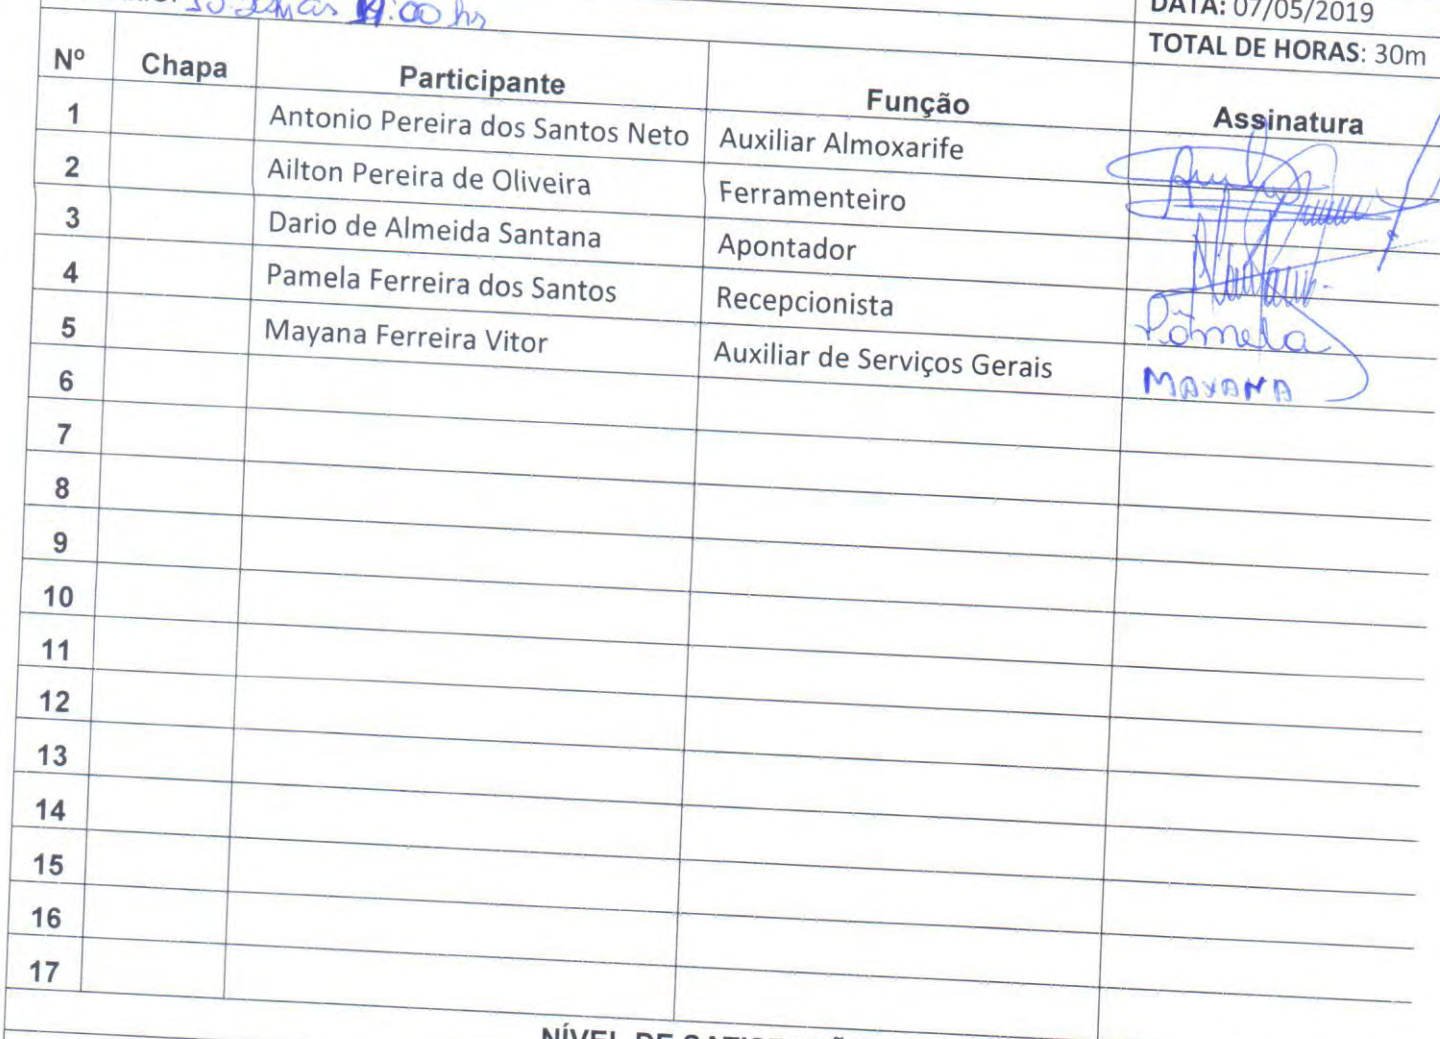 às 11:00 hs
DATA: 07/05/2019
TOTAL DE HORAS: 30m
Nº Chapa Participante Função Assinatura
1 Antonio Pereira dos Santos Neto Auxiliar Almoxarife
2 Ailton Pereira de Oliveira Ferramenteiro
3 Dario de Almeida Santana Apontador
4 Pamela Ferreira dos Santos Recepcionista Pâmela
5 Mayana Ferreira Vitor Auxiliar de Serviços Gerais MAYANA
6
7
8
9
10
11
12
13
14
15
16
17
NÍVEL DE